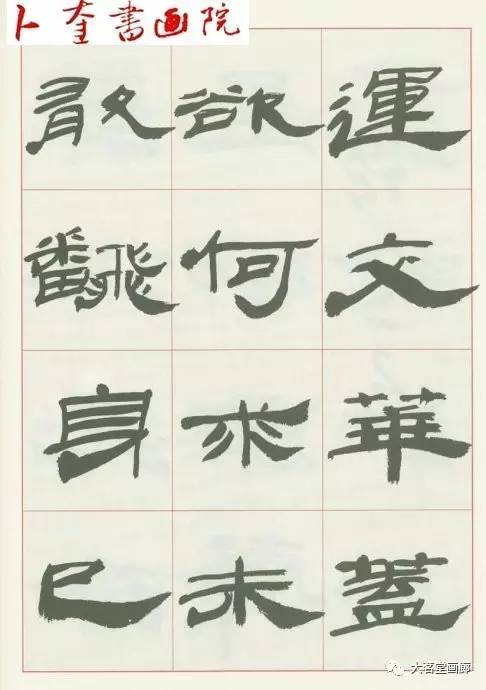 卜奎書画院
運交華蓋
欲何求未
敢飜身已
大茗堂画廊